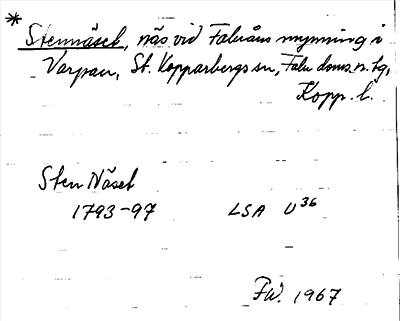 * Stennäset, näs vid Faluåns mynning i
Varpan, St. Kopparbergs sn, Falu doms. n. tg,
Kopp. l.
Sten Näset
1793-97 LSA U36
FW. 1967